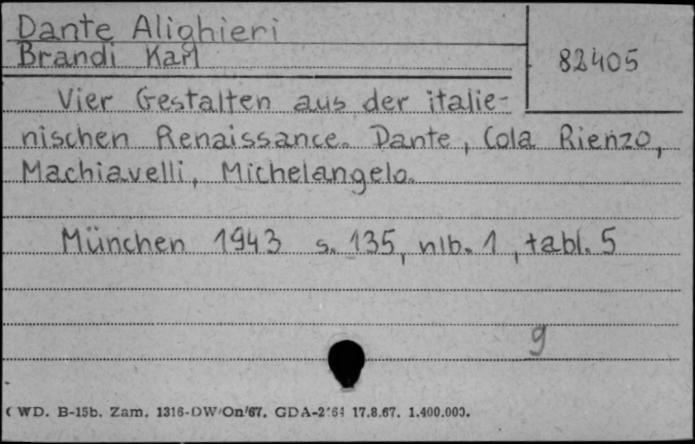 Dante Alighieri
Brandi Karl
82405
Vier Gestalten aus der italie-
nischen Renaissance. Dante, Cola Rienzo,
Machiavelli, Michelangelo.
München 1943 s. 135, nlb. 1, tabl. 5
g
WD. B-15b. Zam. 1316-DW/On/67. GDA-2/64 17.8.67. 1.400.000.